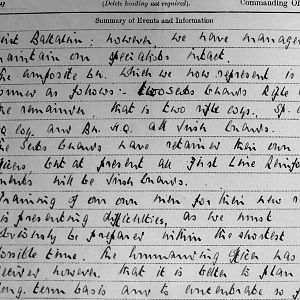 (Delete heading not required).
Commanding Of
Summary of Events and Information
Joint Battalion; however, we have manage
maintain our specialists intact.
The composite bn. which we now represent is
formed as follows:- two Scots Guards Rifle
the remainder, that is two rifle coys., Sp.
HQ coy. and Bn. H.Q. all Irish Guards.
The Scots Guards have retained their own
officers, but at present all First Line Reinfo
ments will be Irish Guards.
Training of our own men for their new r
is presenting difficulties, as we must
obviously be prepared within the shortest
possible time. The Commanding Officer has
decided however that it is better to plan
long-term basis and to concentrate